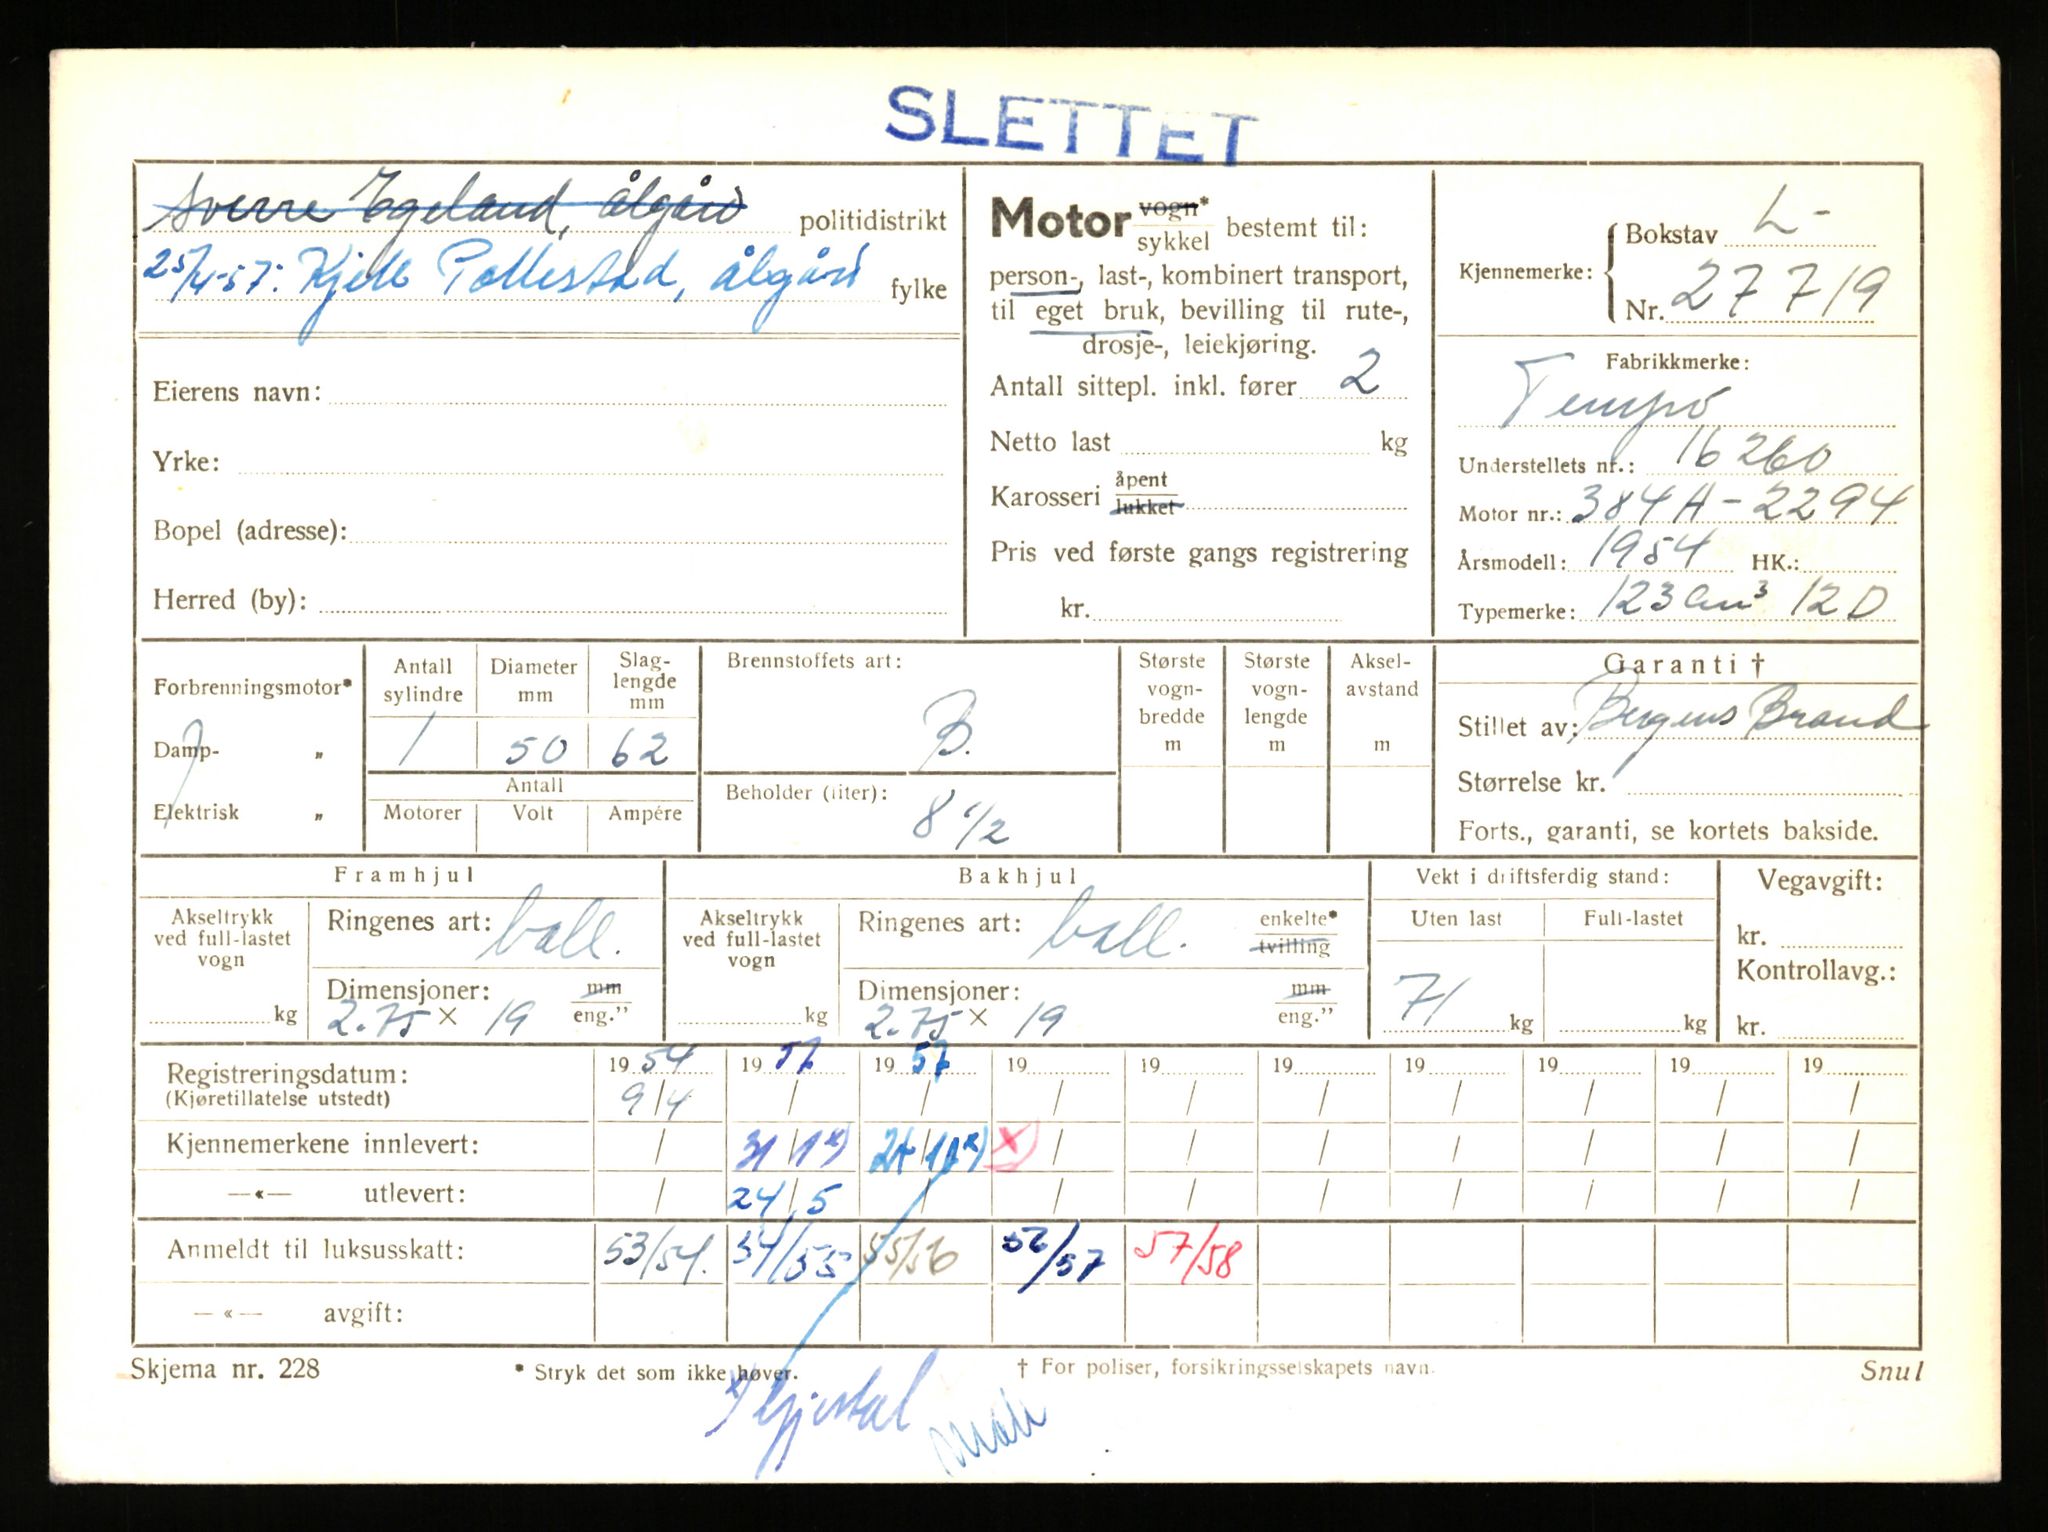 SLETTET
Sverre Egeland, Ålgård politidistrikt
25/4-57: Kjell Pollestad, Ålgård fylke
Eierens navn:
Yrke:
Bopel (adresse):
Herred (by):
Motor vogn* sykkel bestemt til:
person-, last-, kombinert transport,
til eget bruk, bevilling til rute-,
drosje-, leiekjøring.
Antall sittepl. inkl. fører 2
Netto last kg
Karosseri åpent lukket
Pris ved første gangs registrering
kr.
Kjennemerke: Bokstav L-
Nr. 27719
Fabrikkmerke:
Tempo
Understellets nr.: 16260
Motor nr.: 384A-2294
Årsmodell: 1954 HK.:
Typemerke: 123 cm³ 12D
Forbrenningsmotor*
Damp- „
Elektrisk „
Antall sylindre 1
Diameter mm 50
Slag-lengde mm 62
Antall
Motorer Volt Ampére
Brennstoffets art: B.
Beholder (liter): 8 1/2
Største vogn-bredde m
Største vogn-lengde m
Aksel-avstand m
Garanti †
Stillet av: Bergens Brand
Størrelse kr.
Forts., garanti, se kortets bakside.
Framhjul
Akseltrykk ved full-lastet vogn kg
Ringenes art: ball.
Dimensjoner: mm eng."
2.75 × 19
Bakhjul
Akseltrykk ved full-lastet vogn kg
Ringenes art: ball. enkelte* tvilling
Dimensjoner: mm eng."
2.75 × 19
Vekt i driftsferdig stand:
Uten last Full-lastet
71 kg kg
Vegavgift:
kr.
Kontrollavg.:
kr.
Registreringsdatum: 1954 1957 1957 19 19 19 19 19 19 19
(Kjøretillatelse utstedt) 9/4 / / / / / / / / /
Kjennemerkene innlevert: / 31/1 x) 24/11 x) x) / / / / / / /
—«— utlevert: / 24/5 / / / / / / / /
Anmeldt til luksusskatt: 53/54. 54/55 55/56 56/57 57/58
—«— avgift:
Skjema nr. 228 * Stryk det som ikke høver. † For poliser, forsikringsselskapets navn. Snul
x) Gjestal